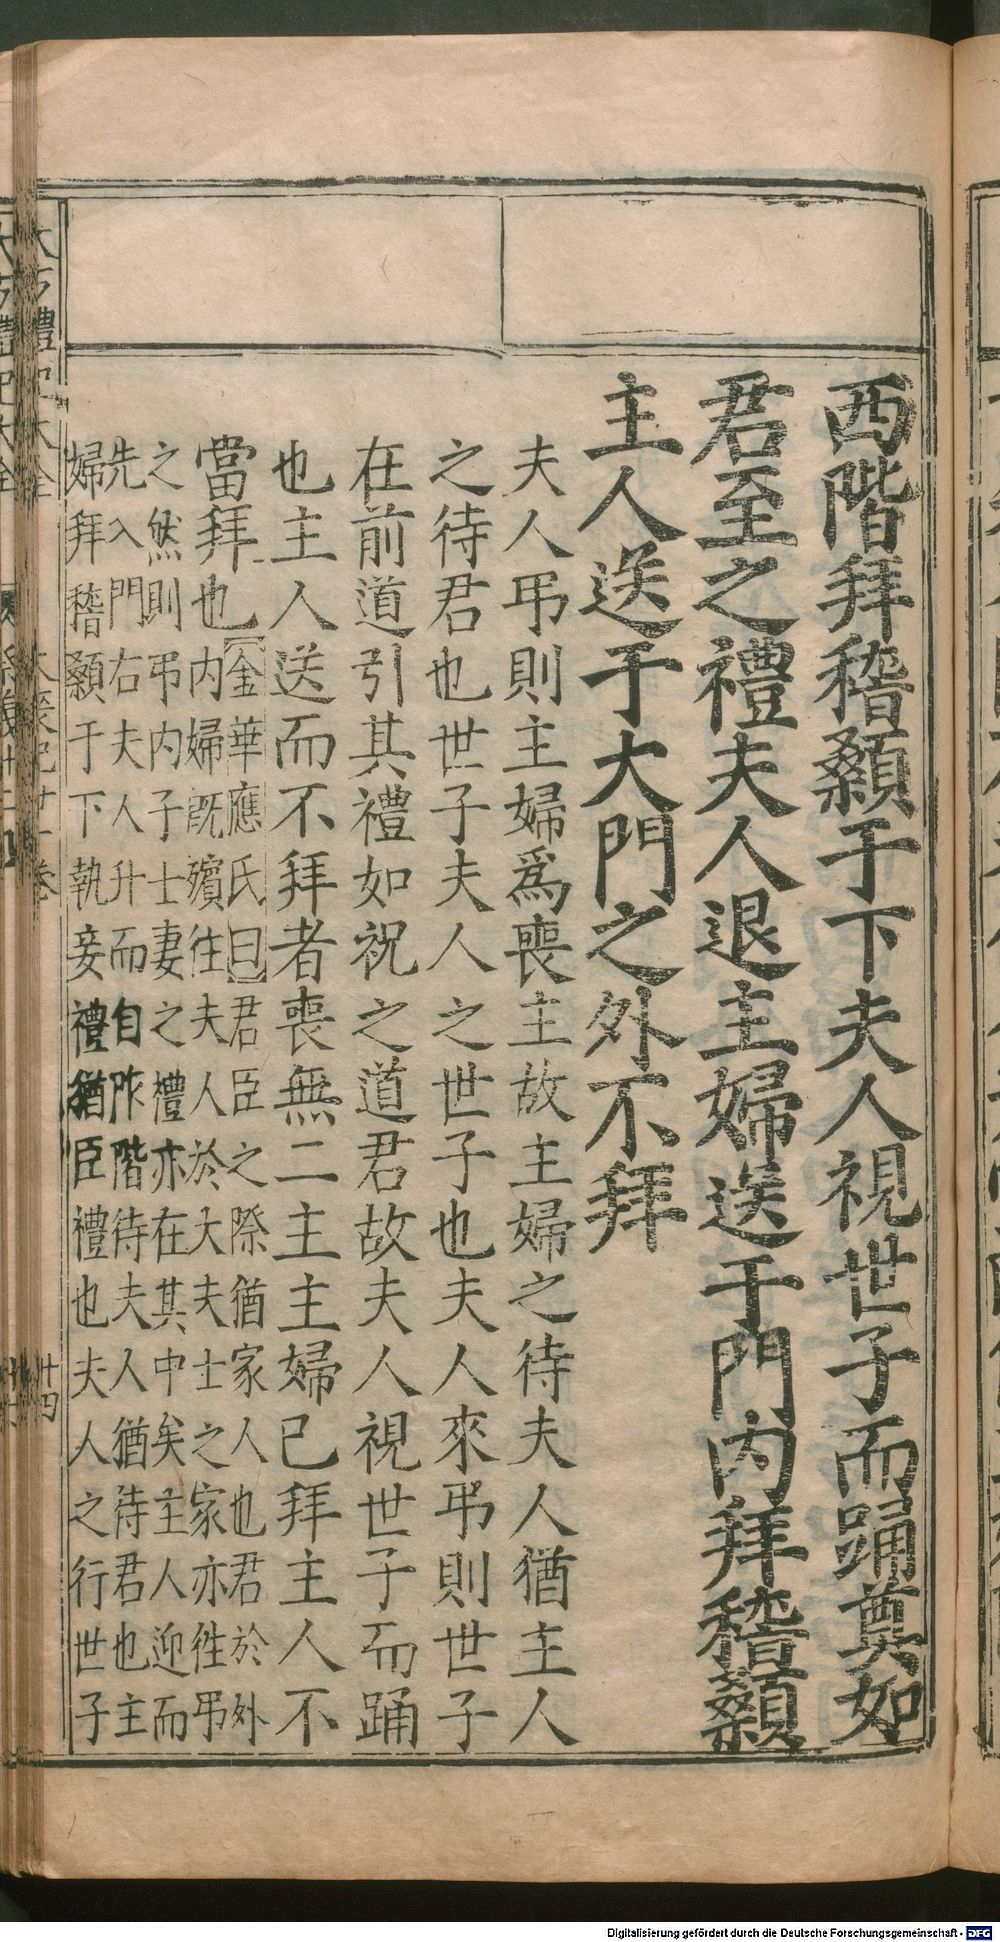 西階拜稽顙于下夫人視世子而踊奠如
君至之禮夫人退主婦送于門內拜稽顙
主人送于大門之外不拜
夫人弔則主婦爲喪主故主婦之待夫人猶主人
之待君也世子夫人之世子也夫人來弔則世子
在前道引其禮如祝之道君故夫人視世子而踊
也主人送而不拜者喪無二主主婦已拜主人不
當拜也
金華應氏曰君臣之際猶家人也君於外
內婦既殯往夫人於大夫士之家亦徃弔
之然則弔內子士妻之禮亦在其中矣主人迎而
先入門右夫人升而自阼階待夫人猶待君也主
婦拜稽顙于下執妾禮猶臣禮也夫人之行世子
大方禮記大全 大喪記廿一卷 廿四
Digitalisierung gefördert durch die Deutsche Forschungsgemeinschaft - DFG